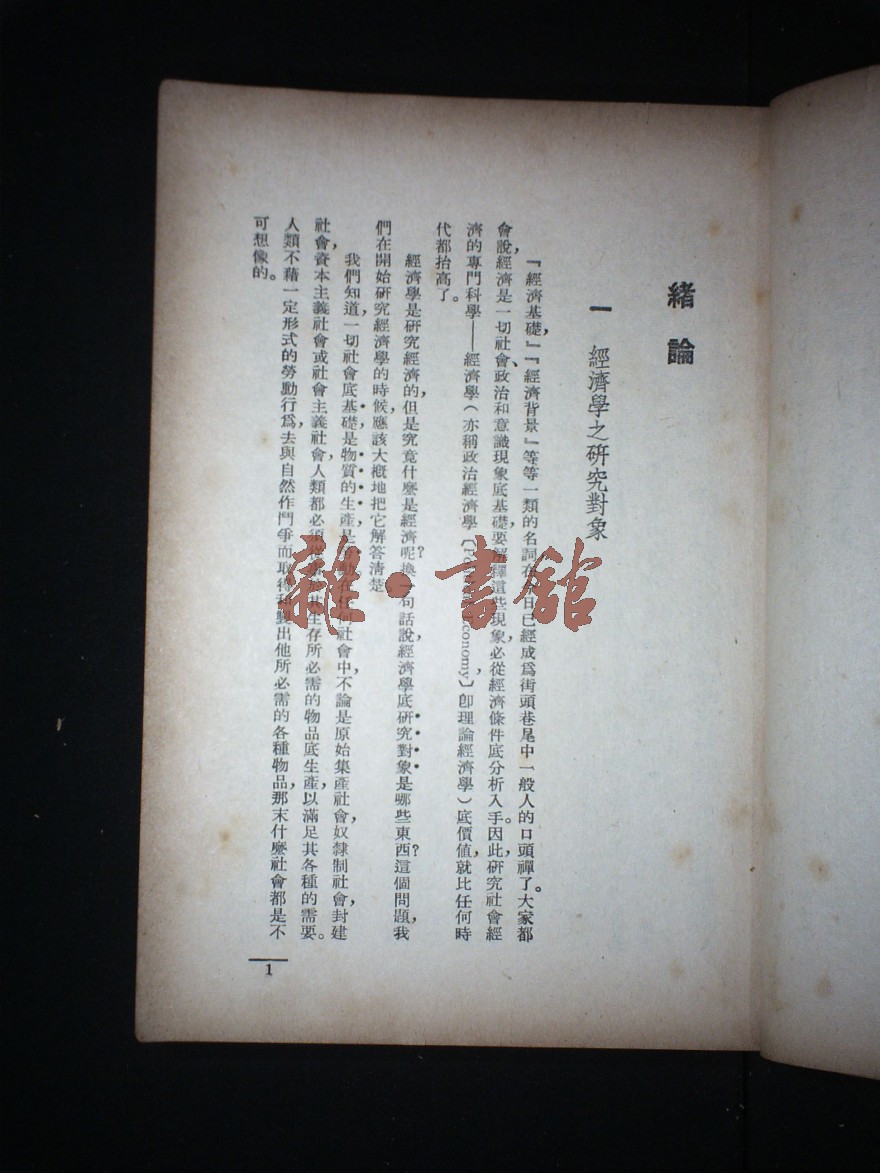 緒論
一 經濟學之研究對象
『經濟基礎,』『經濟背景』等等一類的名詞在日已經成爲街頭巷尾中一般人的口頭禪了。大家都
會說,經濟是一切社會、政治和意識現象底基礎,要解釋這些現象,必從經濟條件底分析入手。因此,研究社會經
濟的專門科學——經濟學(亦稱政治經濟學〔Economy〕,卽理論經濟學)底價値,就比任何時
代都抬高了。
經濟學是研究經濟的,但是究竟什麼是經濟呢?換一句話說,經濟學底研究對象是哪些東西?這個問題,我
們在開始研究經濟學的時候,應該大槪地把它解答淸楚
我們知道,一切社會底基礎,是物質的生產,是動。在任何社會中,不論是原始集產社會,奴隸制社會,封建
社會,資本主義社會或社會主義社會,人類都必須從其生存所必需的物品底生產,以滿足其各種的需要。
人類不藉一定形式的勞動行爲,去與自然作鬥爭而取得和製出他所必需的各種物品,那末什麼社會都是不
可想像的。
1
雜·書館